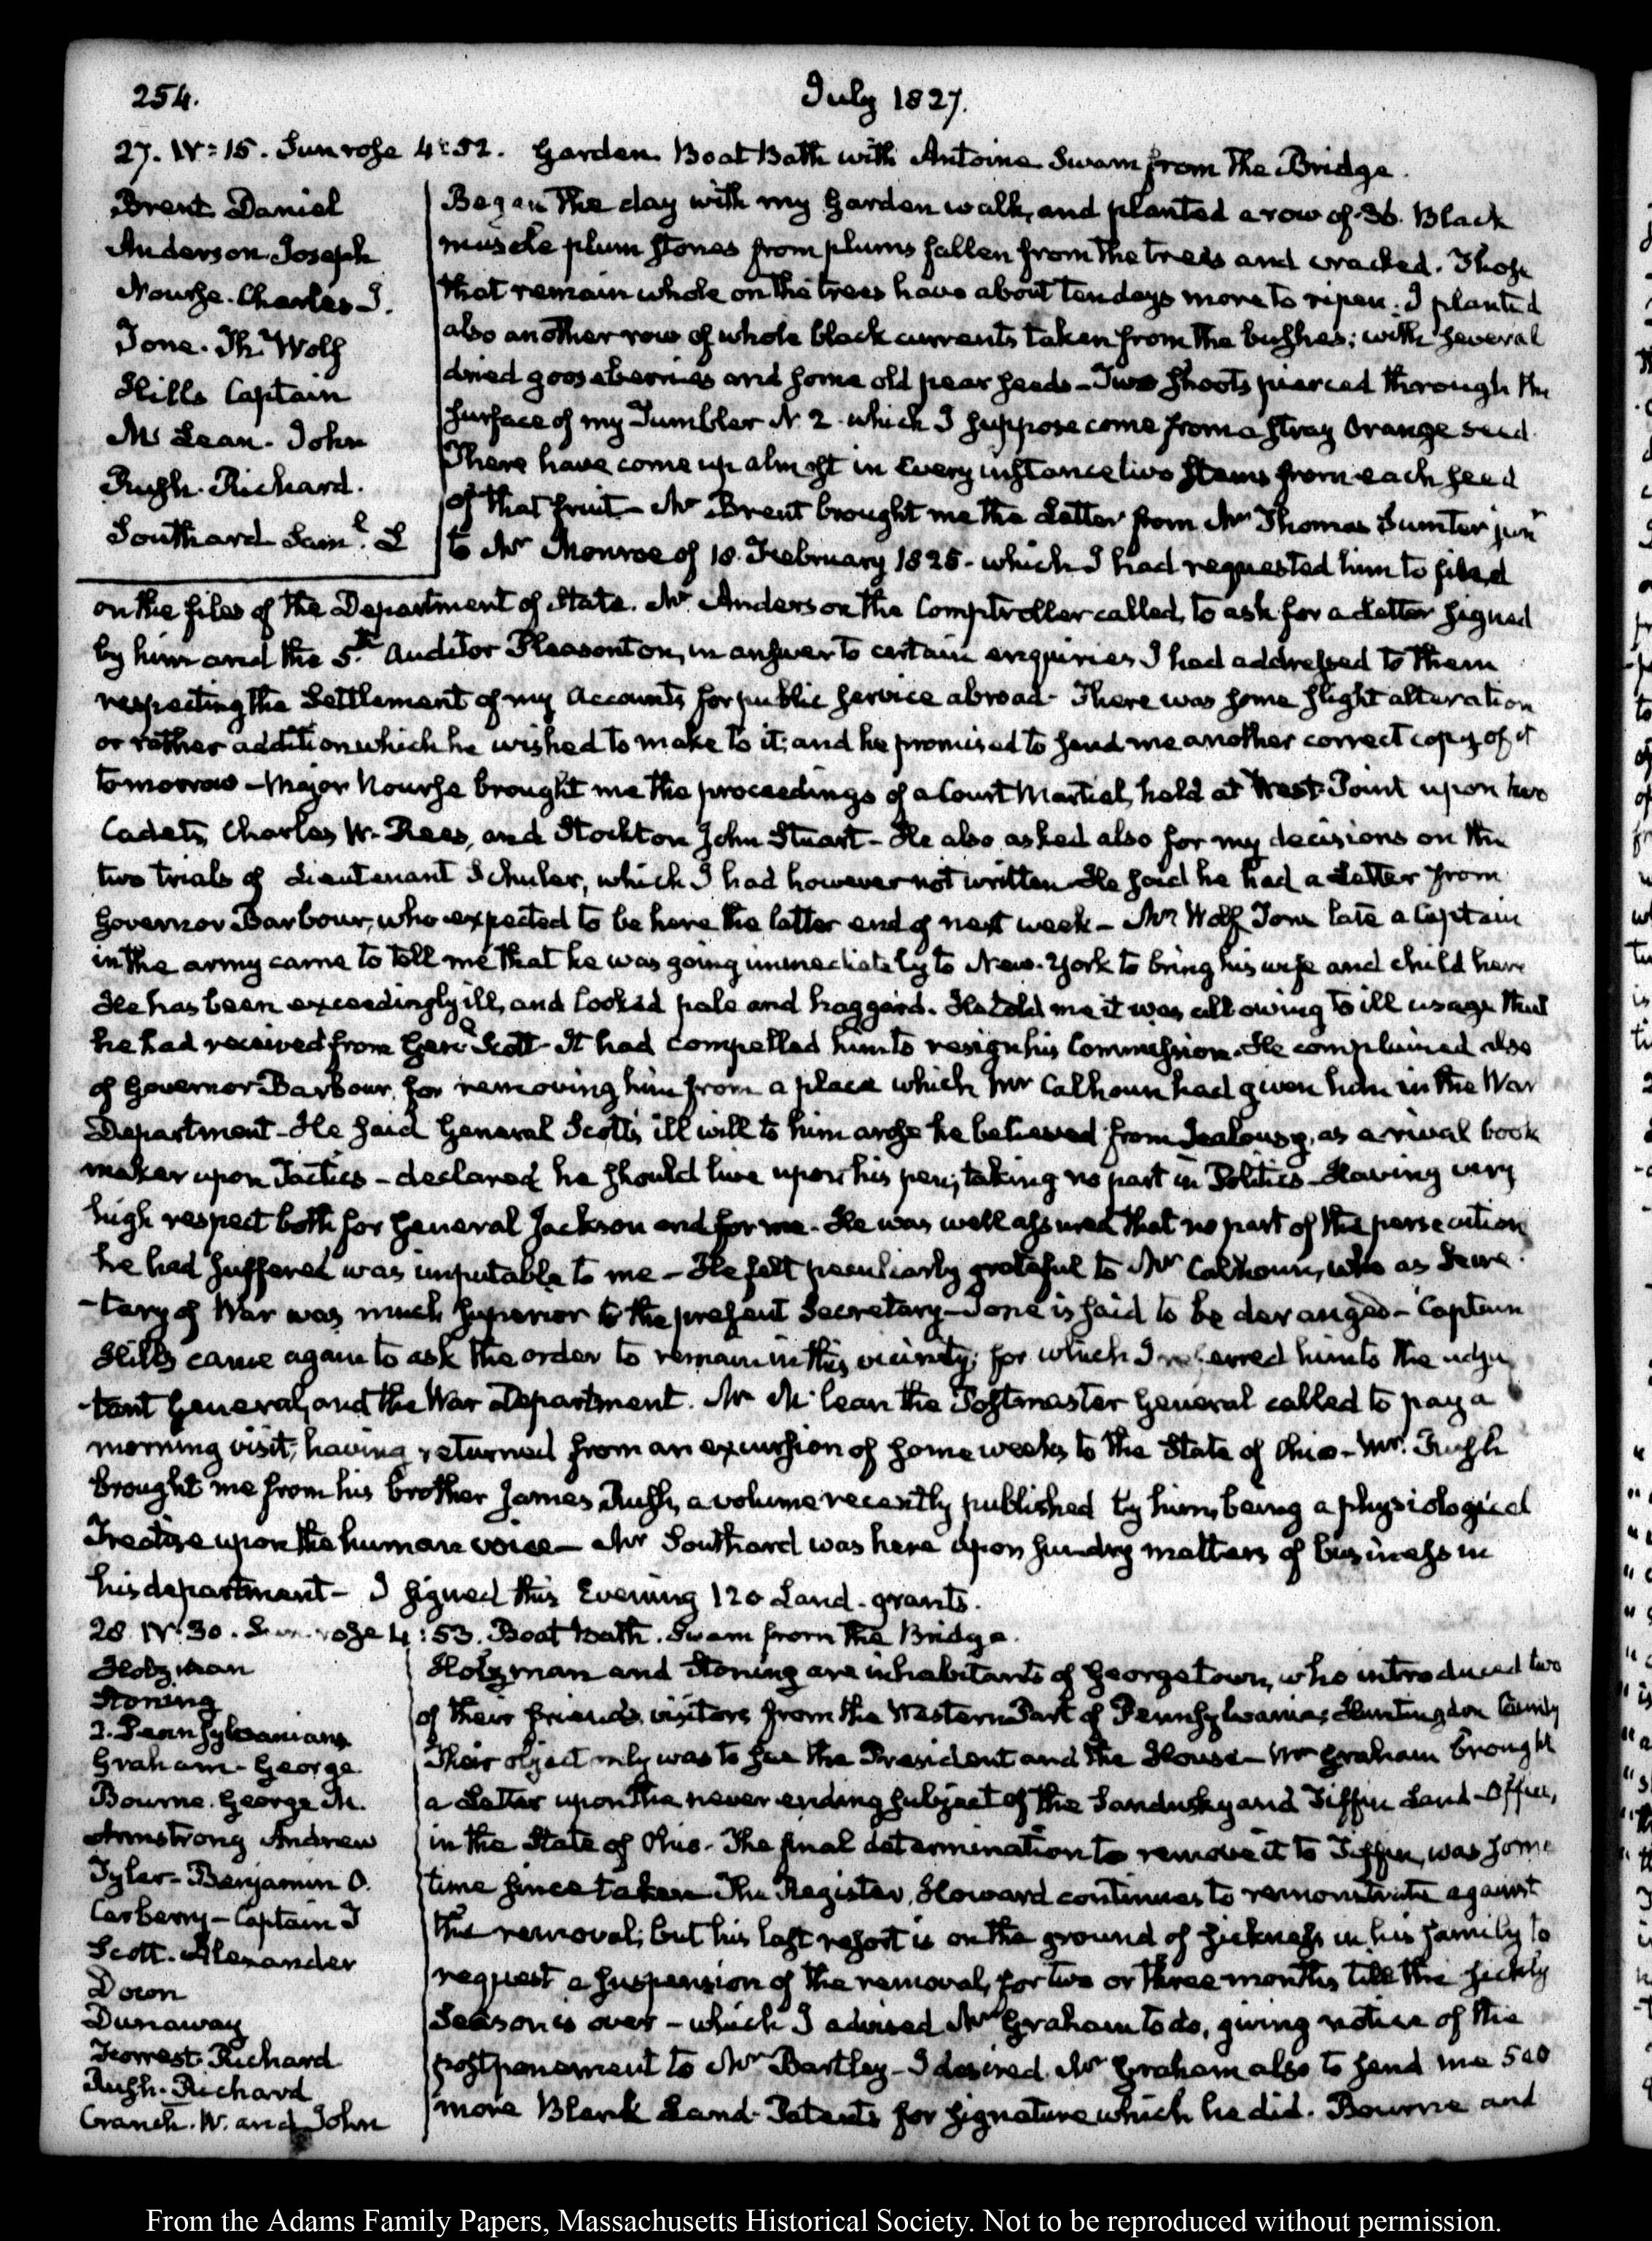 254.
July 1827.
27. IV:15. Sun rose 4:52. Garden. Boat Bath with Antoine Swam from The Bridge.
Brent Daniel
Anderson Joseph
Nourse. Charles J.
Tone. Th. Wolf
Hills Captain
Mc Lean. John
Rush. Richard.
Southard Saml. L
Began The day with my Garden walk, and planted a row of 36. Black
muscle plum stones from plums fallen from the trees and cracked. Those
that remain whole on the trees have about ten days more to ripen. I planted
also another row of whole black currents taken from the bushes; with several
dried gooseberries and some old pear seeds – Two shoots pierced through the
surface of my Tumbler N. 2. which I suppose come from a stray Orange seed.
There have come up almost in every instance two stems from each seed
of that fruit – Mr Brent brought me the Letter from Mr Thomas Sumter junr
to Mr Monroe of 18. February 1825 - which I had requested him to
on the files of the Department of State. Mr. Anderson the Comptroller called, to ask for a Letter signed
by him and the 5th. Auditor Pleasonton, in answer to certain enquiries I had addressed to them
respecting the Settlement of my Accounts for public service abroad - There was some slight alteration
or rather addition which he wished to make to it; and he promised to send me another correct copy of it
tomorrow – Major Nourse brought me the proceedings of a Court Martial, held at West-Point upon two
Cadets, Charles W. Rees, and Stockton John Stuart – He also asked also for my decisions on the
two trials of Lieutenant Schuler, which I had however not written – He said he had a Letter from
Governor Barbour, who expected to be here the latter end of next week – Mr Wolf Tone late a Captain
in the army came to tell me that he was going immediately to New-York to bring his wife and child here
He has been exceedingly ill, and looked pale and haggard. He told me it was all owing to ill usage that
he had received from Genl Scott – It had compelled him to resign his Commission. He complained also
of Governor Barbour, for removing him from a place which Mr Calhoun had given him in the War
Department – He said General Scott's ill will to him arose he believed from Jealousy, as a rival book
maker upon Tactics – declared he should live upon his pen; taking no part in Politics – Having very
high respect both for General Jackson and for me. He was well assured that no part of the persecution
he had suffered was imputable to me – He felt peculiarly grateful to Mr Calhoun, who as Secre-
-tary of War was much superior to the present Secretary – Tone is said to be deranged – Captain
Hills came again to ask the order to remain in this vicinity; for which I referred him to the adju
-tant General, and the War Department. Mr Mc lean the Postmaster General called to pay a
morning visit, having returned from an excursion of some weeks to the State of Ohio – Mr. Rush
brought me from his brother James Rush, a volume recently published by him, being a physiological
Treatise upon the human voice – Mr Southard was here upon sundry matters of business in
his department – I signed this Evening 120 Land-grants.
28. IV:30. Sun rose 4:53. Boat bath. Swam from The Bridge.
Holzman
Stoning
2. Pennsylvanians
Graham – George
Bourne. George M.
Armstrong Andrew
Tyler – Benjamin O.
Carberry – Captain J
Scott. Alexander
Doun
Dunaway
Forrest Richard
Rush. Richard
Cranch. W. and John
Holzman and Stoning are inhabitants of Georgetown, who introduced two
of their friends, visitors from the Western Part of Pennsylvania; Huntingdon County
Their object only was to see the President and the House – Mr Graham brought
a Letter upon the never ending subject of the Sandusky and Tiffin Land-Office,
in the State of Ohio. The final determination to remove it to Tiffin, was some
time since taken – The Register, Howard continues to remonstrate against
the removal; but his last resort is on the ground of sickness in his family to
request a suspension of the removal, for two or three months, till the sickly
Season is over – which I advised Mr Graham to do, giving notice of the
postponement to Mr Bartley – I desired Mr Graham also to send me 500
more Blank Land-Patents for signature which he did. Bourne and
From the Adams Family Papers, Massachusetts Historical Society. Not to be reproduced without permission.